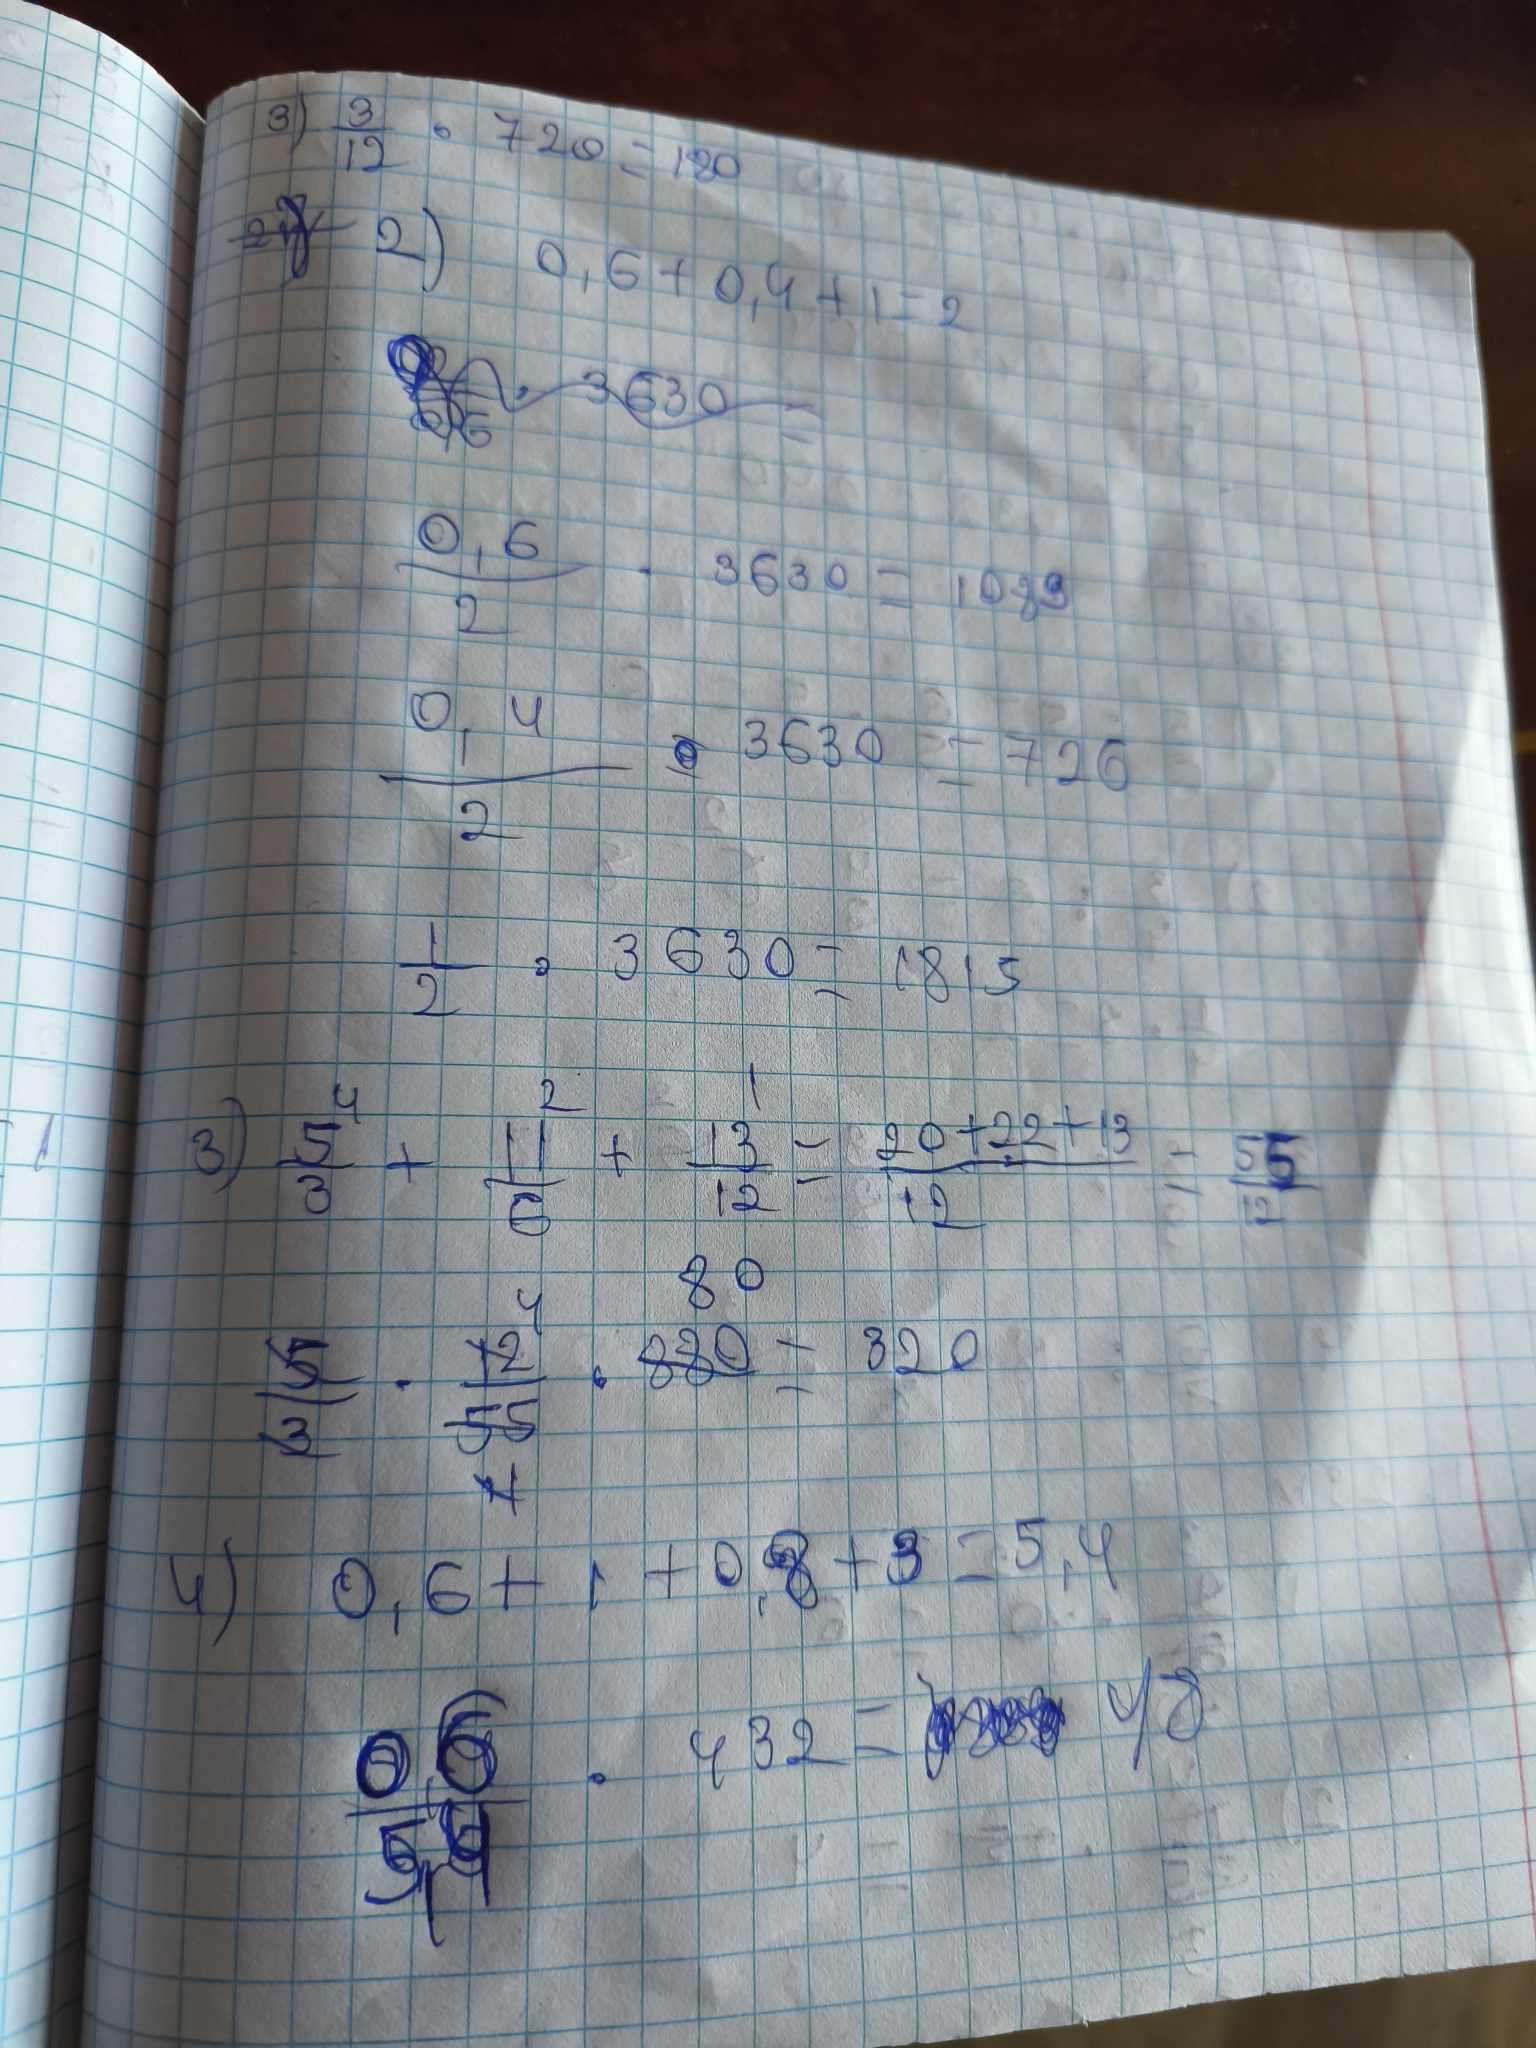 3) 3/12 · 720 = 180
2) 0,6 + 0,4 + 1 = 2
3630 =
0,6/2 · 3630 = 1089
0,4/2 · 3630 = 726
1/2 · 3630 = 1815
4 2 1
3) 5/3 + 11/6 + 13/12 = 20+22+13/12 = 55/12
4 80
5/3 · 12/55 · 880 = 320
1
4) 0,6 + 1 + 0,8 + 3 = 5,4
0,6/5,4 · 432 = 48